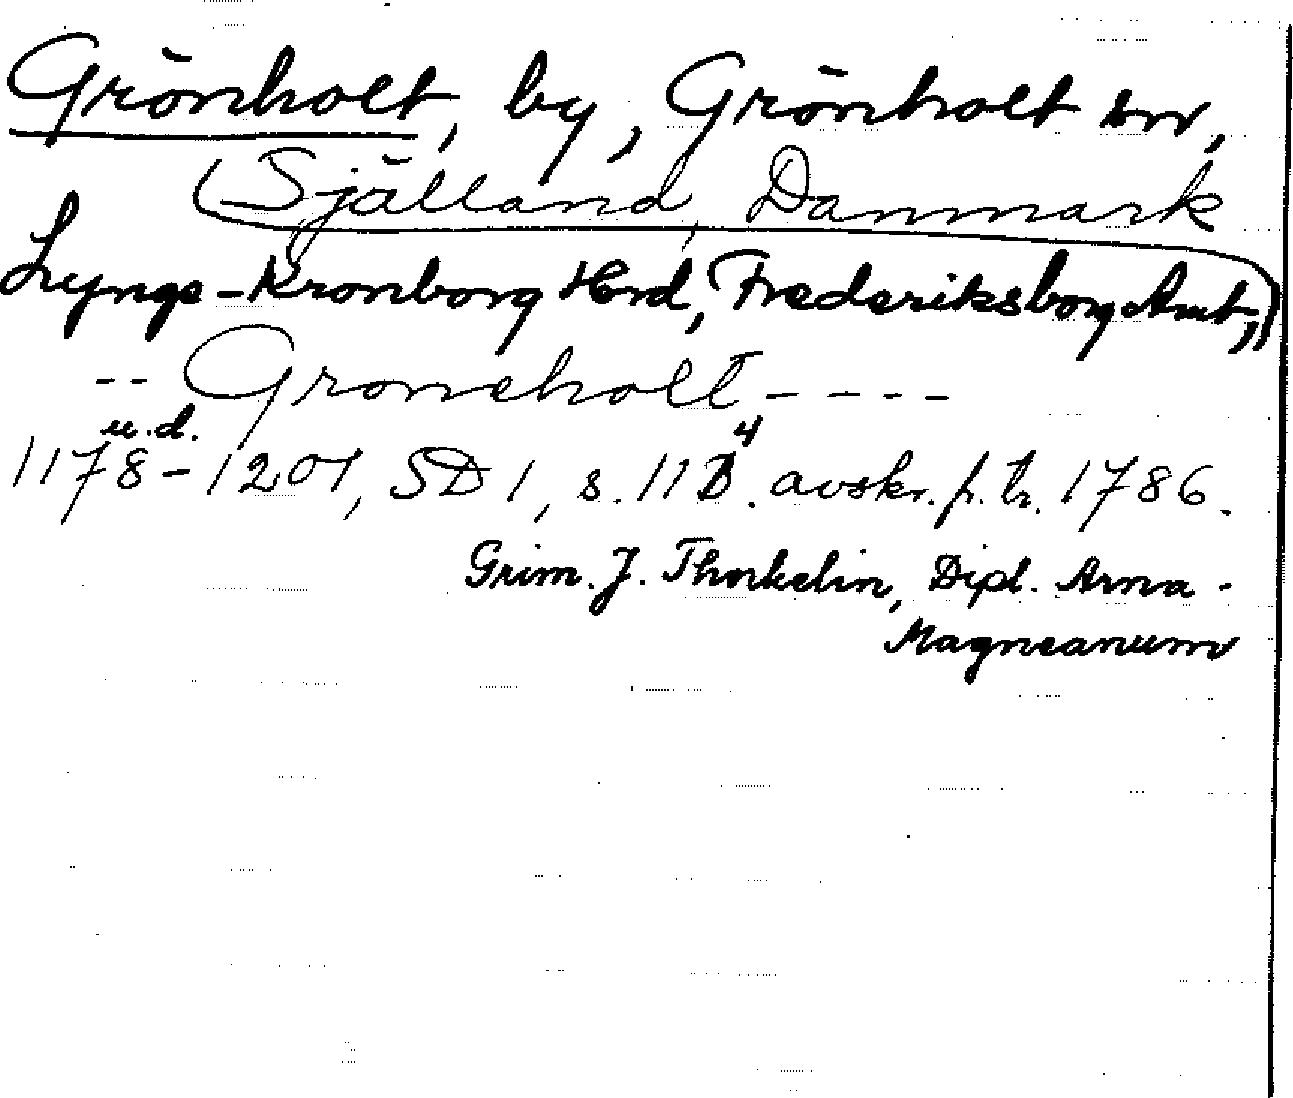 Grönholt, by, Grönholt sn,
(Själland, Danmark
Lynge-Kronborg Hrd, Frederiksborg Amt,)
-- Groneholt ----
u.d.
1178-1201, SD 1, s. 114. avskr. f. tr. 1786.
Grim. J. Thorkelin, Dipl. Arna-
Magneanum